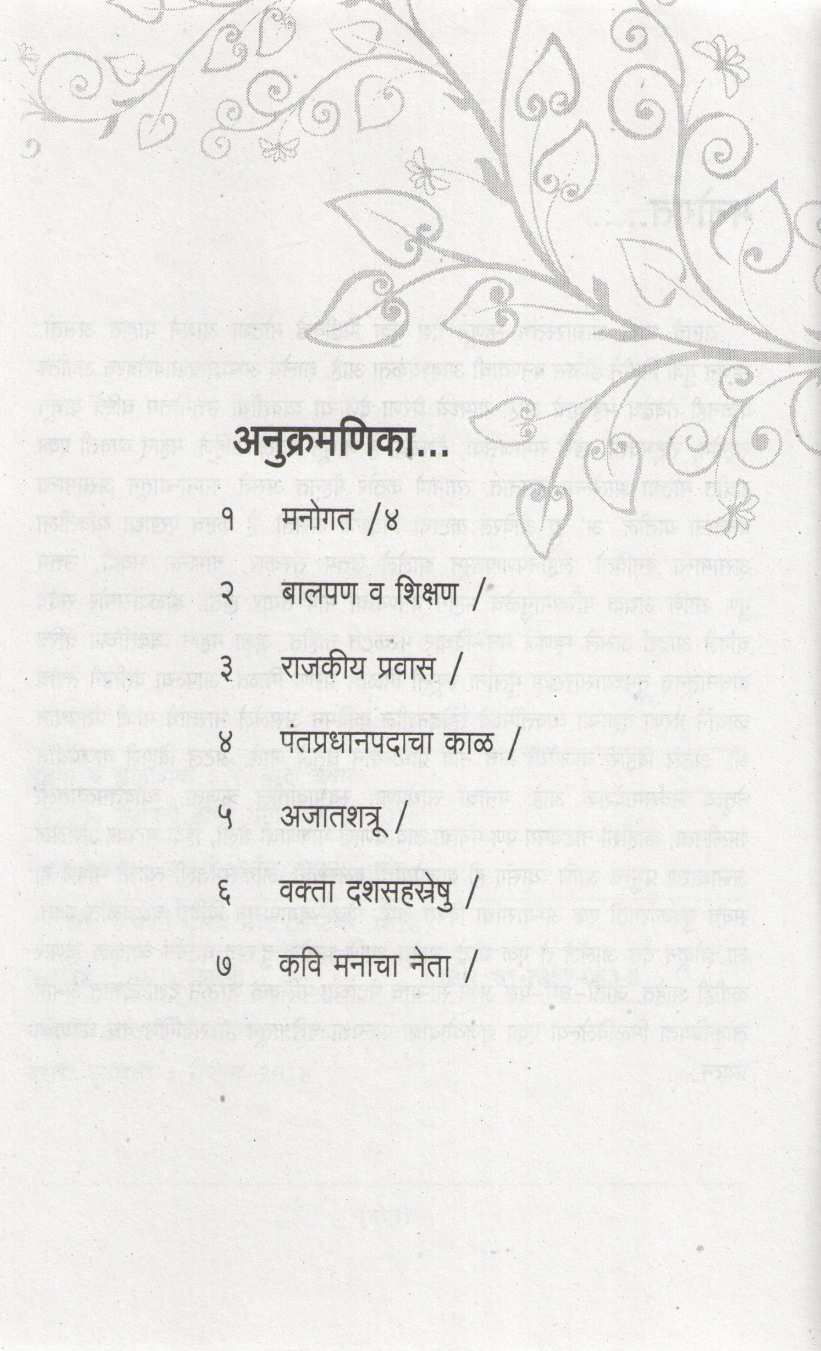 अनुक्रमणिका...
१ मनोगत /४
२ बालपण व शिक्षण /
३ राजकीय प्रवास /
४ पंतप्रधानपदाचा काळ /
५ अजातशत्रू /
६ वक्ता दशसहस्रेषु /
७ कवि मनाचा नेता /